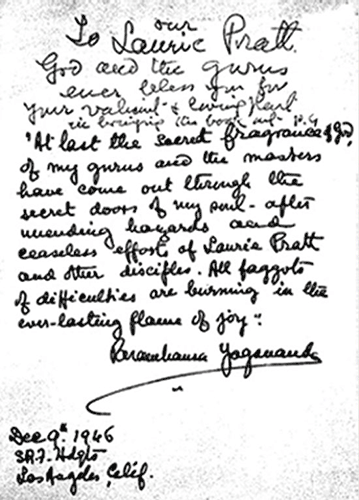 our
To Laurie Pratt.
God and the gurus
ever bless you for
your valiant & loving part
in bringing this book out. P.Y.
"At last the secret fragrance of God,
of my gurus and the masters
have come out through the
secret doors of my soul - after
unending hazards and
ceaseless efforts of Laurie Pratt
and other disciples. All faggots
of difficulties are burning in the
ever-lasting flame of joy":
Paramhansa Yogananda
Dec 9th 1946
S.R.F. Hdqts
Los Angeles, Calif.